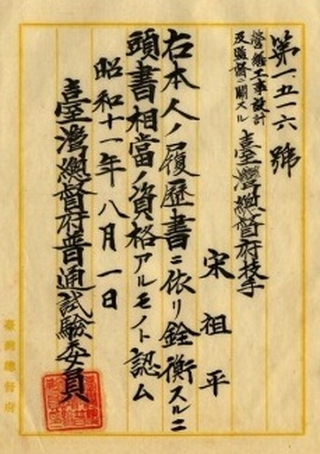 第一五一六號
營繕工事設計
及監督ニ關スル
臺灣總督府技手
宋祖平
右本人ノ履歷書ニ依リ銓衡スルニ
頭書相當ノ資格アルモノト認ム
昭和十一年八月一日
臺灣總督府普通試驗委員
臺灣總督府